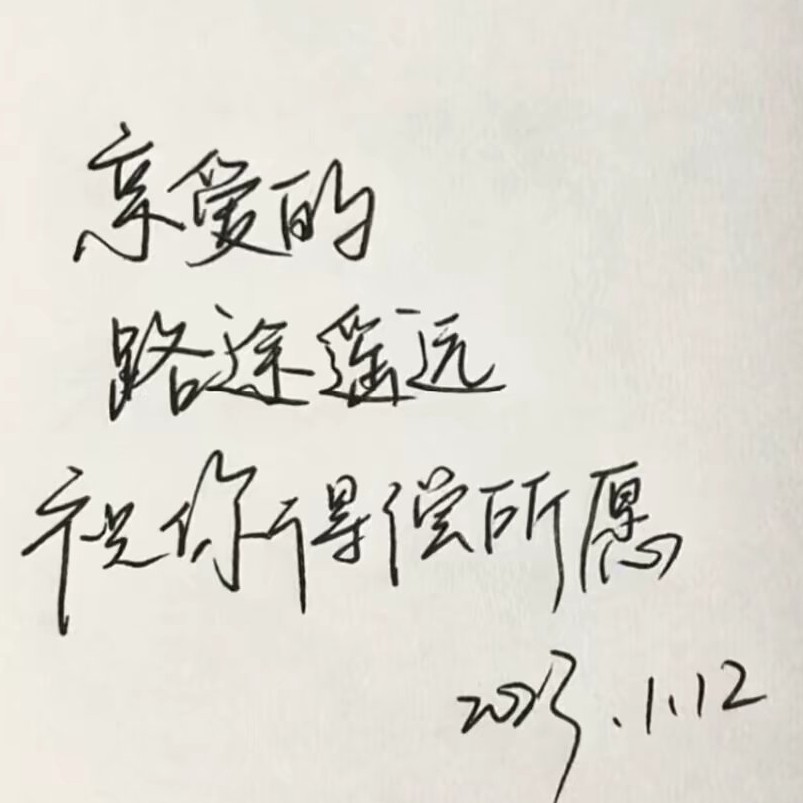 亲爱的
路途遥远
祝你得偿所愿
2023.1.12